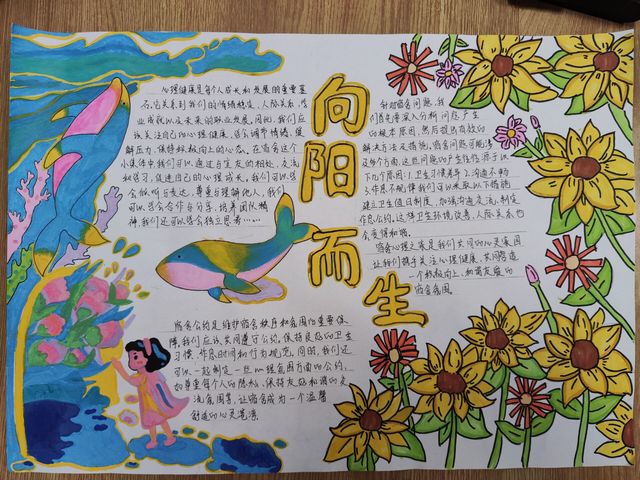 向阳而生
心理健康是每个人成长和发展的重要基
石,它关系到我们的情绪稳定,人际关系,学
业成就以及未来的职业发展,因此,我们应
该关注自己的心理健康,学会调节情绪,缓
解压力,保持积极向上的心态,在宿舍这个
小集体中我们可以通过与室友的相处,交流
和学习,促进自己的心理成长,我们可以学
会倾听与表达,尊重与理解他人,我们
可以学会合作与分享,培养团队精
神,我们还可以学会独立思考……
宿舍公约是维护宿舍秩序和氛围的重要保
障,我们应该共同遵守公约,保持良好的卫生
习惯,作息时间和行为规范,同时,我们还
可以一起制定一些心理氛围方面的公约,
如尊重每个人的隐私,保持友好和谐的交
流氛围等,让宿舍成为一个温馨
舒适的心灵港湾
针对宿舍问题,我
们首先要深入分析问题产生
的根本原因,然后提出有效的
解决方法及措施,宿舍问题可能涉
及多个方面,这些问题的产生往往源于以
下几个原因:卫生习惯差异,沟通不畅
,作息不规律我们可以采取以下措施
建立卫生值日制度,加强沟通交流,制定
作息公约,这样卫生环境改善,人际关系也
会变得和谐。
宿舍心理之家是我们共同的心灵家园
让我们携手关注心理健康,共同营造
一个积极向上、和谐友爱的
宿舍氛围。